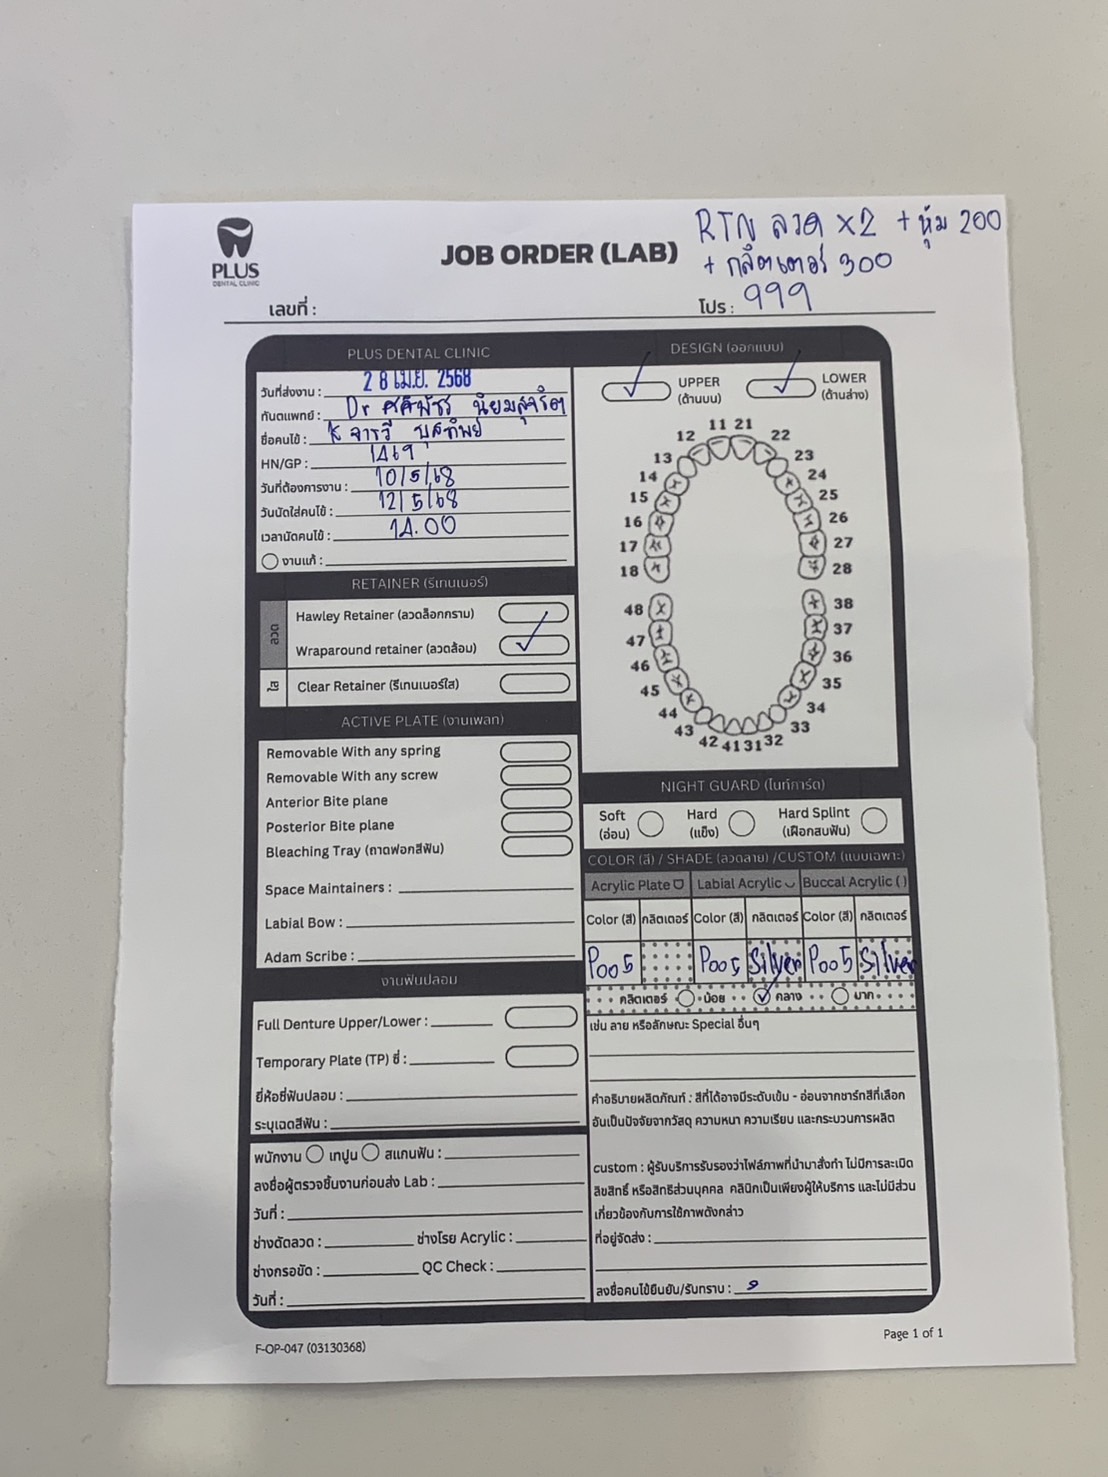 PLUS
DENTAL CLINIC
JOB ORDER (LAB)
RTN ลวด x2 + หุ้ม 200
+ กลิตเตอร์ 300
เลขที่ :
โปร : 999
PLUS DENTAL CLINIC
วันที่ส่งงาน : 28 เม.ย. 2568
ทันตแพทย์ : Dr ศศิพัชร นิยมสุจริต
ชื่อคนไข้ : จารวี บุสทิพย์
HN/GP : 1469
วันที่ต้องการงาน : 10/5/68
วันนัดใส่คนไข้ : 12/5/68
เวลานัดคนไข้ : 14.00
งานแก้ :
RETAINER (รีเทนเนอร์)
ลวด
Hawley Retainer (ลวดล็อกกราม)
Wraparound retainer (ลวดล้อม)
ใส
Clear Retainer (รีเทนเนอร์ใส)
ACTIVE PLATE (งานเพลท)
Removable With any spring
Removable With any screw
Anterior Bite plane
Posterior Bite plane
Bleaching Tray (ถาดฟอกสีฟัน)
Space Maintainers :
Labial Bow :
Adam Scribe :
งานฟันปลอม
Full Denture Upper/Lower :
Temporary Plate (TP) ซี่ :
ยี่ห้อซี่ฟันปลอม :
ระบุเฉดสีฟัน :
พนักงาน เทปูน สแกนฟัน :
ลงชื่อผู้ตรวจชิ้นงานก่อนส่ง Lab :
วันที่ :
ช่างดัดลวด : ช่างโรย Acrylic :
ช่างกรอขัด : QC Check :
วันที่ :
DESIGN (ออกแบบ)
UPPER
(ด้านบน)
LOWER
(ด้านล่าง)
11 21
12 22
13 23
14 24
15 25
16 26
17 27
18 28
48 38
47 37
46 36
45 35
44 34
43 33
42 41 31 32
NIGHT GUARD (ไนท์การ์ด)
Soft
(อ่อน)
Hard
(แข็ง)
Hard Splint
(เฝือกสบฟัน)
COLOR (สี) / SHADE (ลวดลาย) /CUSTOM (แบบเฉพาะ)
Acrylic Plate Labial Acrylic Buccal Acrylic ( )
Color (สี) กลิตเตอร์ Color (สี) กลิตเตอร์ Color (สี) กลิตเตอร์
P005 P005 Silver P005 Silver
กลิตเตอร์ น้อย กลาง มาก
เช่น ลาย หรือลักษณะ Special อื่นๆ
คำอธิบายผลิตภัณฑ์ : สีที่ได้อาจมีระดับเข้ม - อ่อนจากชาร์ทสีที่เลือก
อันเป็นปัจจัยจากวัสดุ ความหนา ความเรียบ และกระบวนการผลิต
custom : ผู้รับบริการรับรองว่าไฟล์ภาพที่นำมาสั่งทำ ไม่มีการละเมิด
ลิขสิทธิ์ หรือสิทธิส่วนบุคคล คลินิกเป็นเพียงผู้ให้บริการ และไม่มีส่วน
เกี่ยวข้องกับการใช้ภาพดังกล่าว
ที่อยู่จัดส่ง :
ลงชื่อคนไข้ยืนยัน/รับทราบ :
F-OP-047 (03130368)
Page 1 of 1